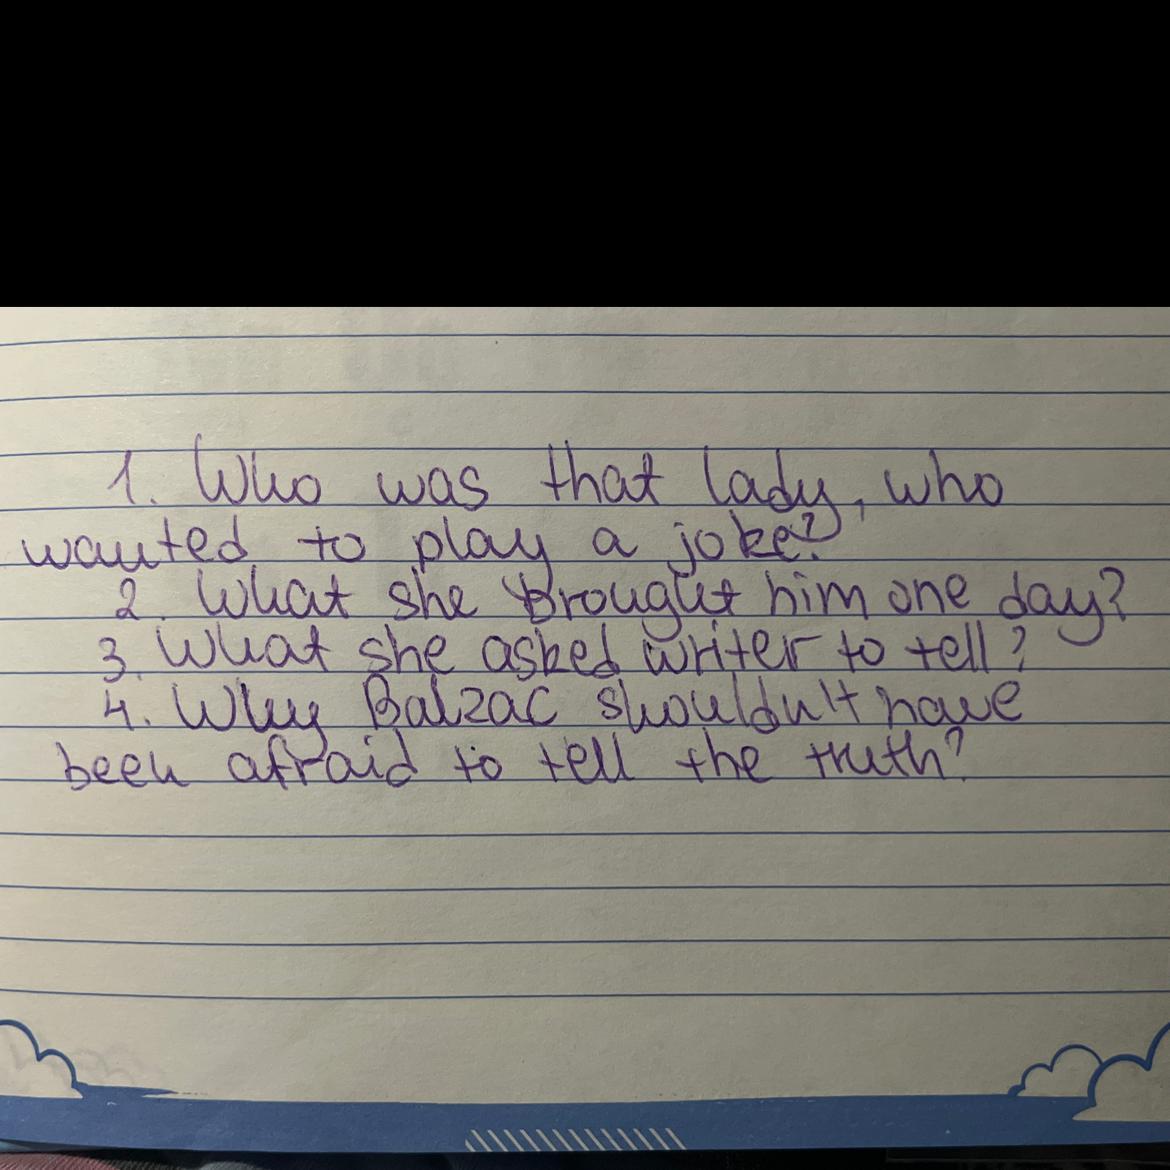 1. Who was that lady, who
wanted to play a joke?
2. What she brought him one day?
3. What she asked writer to tell?
4. Why Balzac shouldn't have
been afraid to tell the truth?